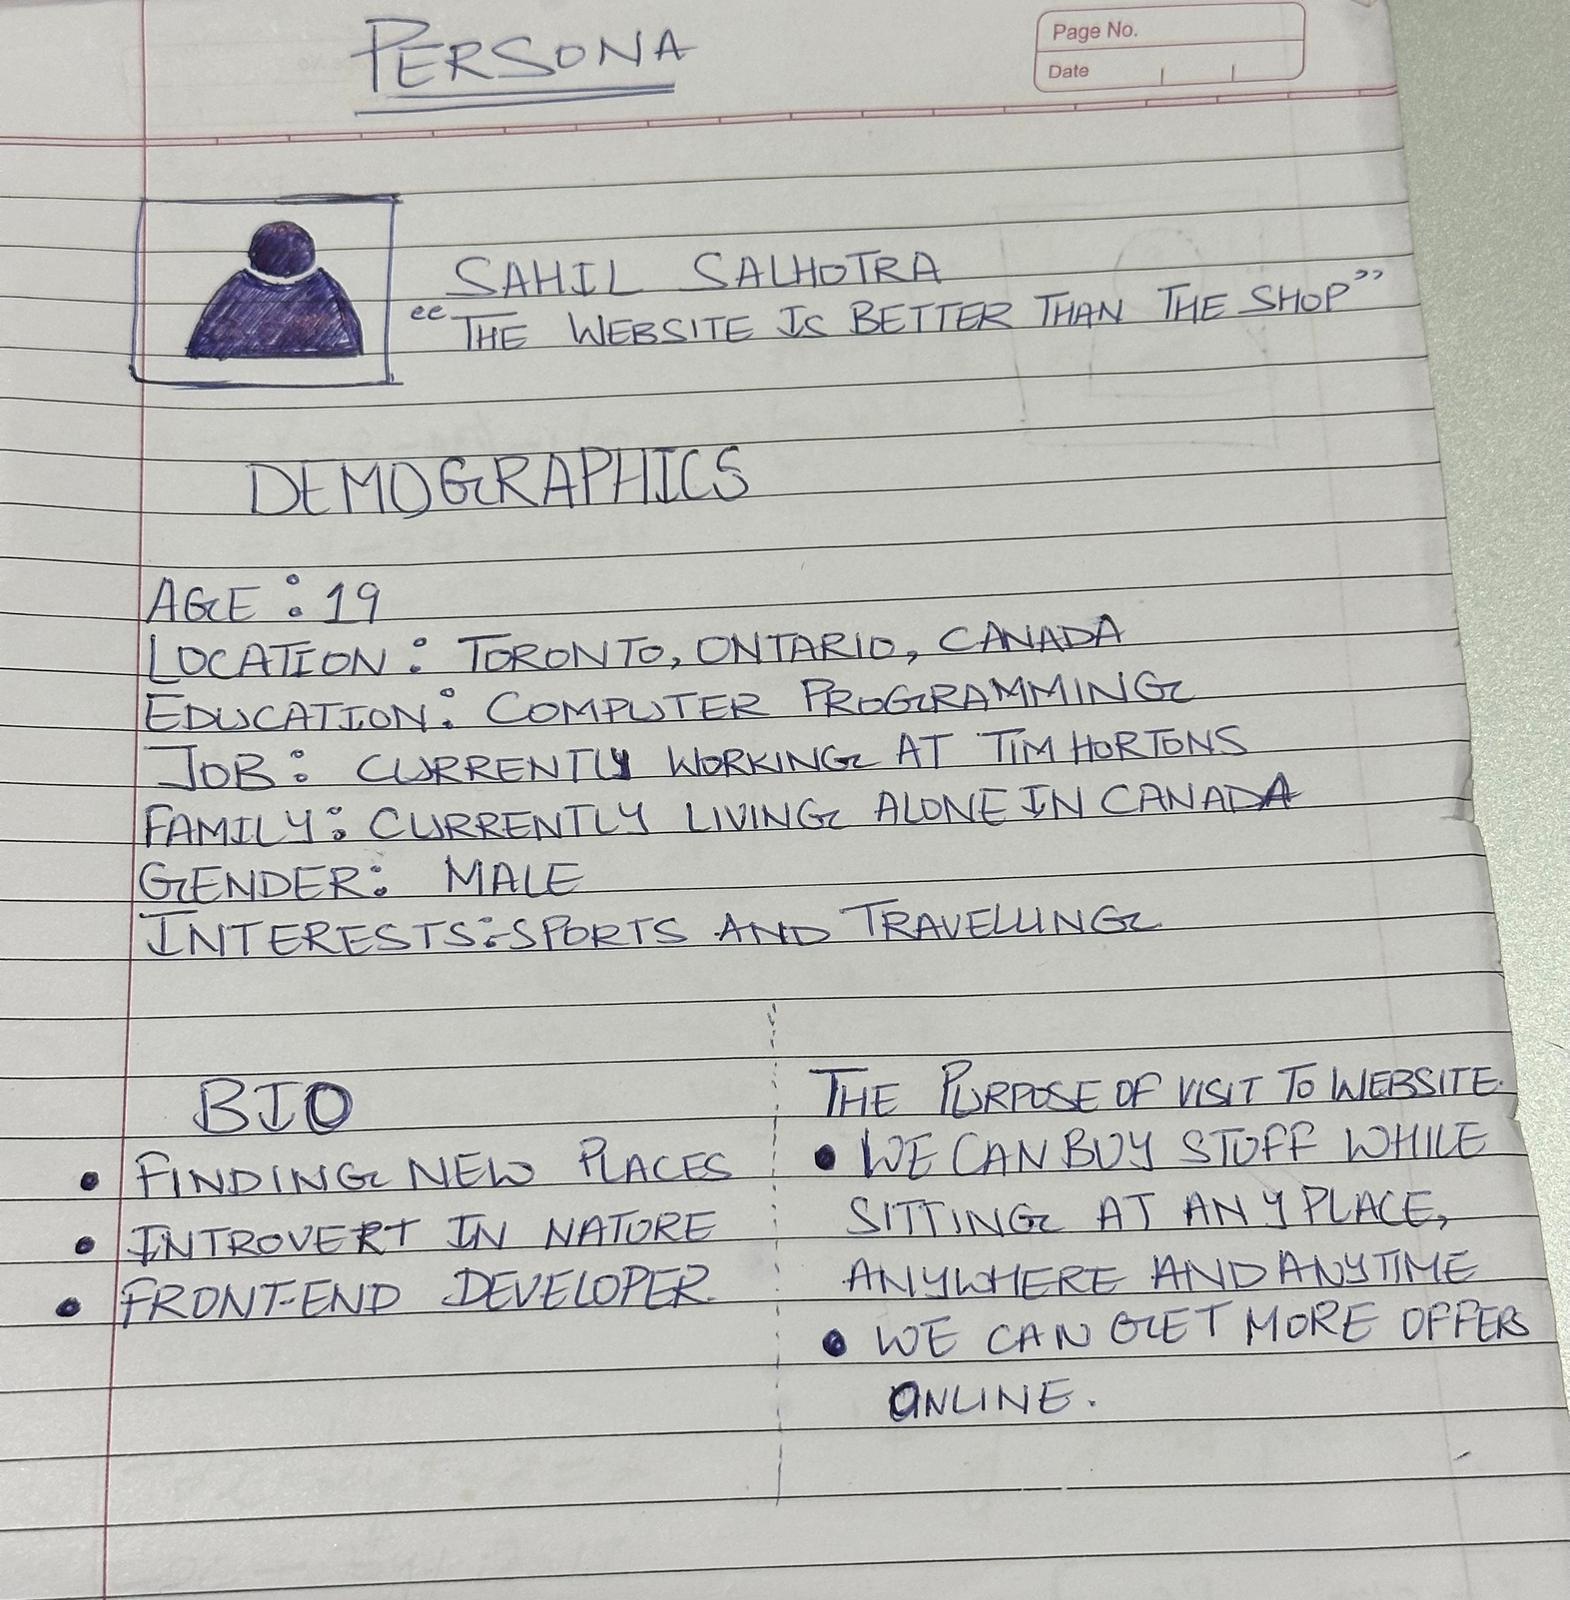 PERSONA
Page No.
Date
SAHIL SALHOTRA
"THE WEBSITE IS BETTER THAN THE SHOP"
DEMOGRAPHICS
AGE : 19
LOCATION : TORONTO, ONTARIO, CANADA
EDUCATION : COMPUTER PROGRAMMING
JOB : CURRENTLY WORKING AT TIM HORTONS
FAMILY : CURRENTLY LIVING ALONE IN CANADA
GENDER : MALE
INTERESTS :- SPORTS AND TRAVELLING
BIO
• FINDING NEW PLACES
• INTROVERT IN NATURE
• FRONT-END DEVELOPER
THE PURPOSE OF VISIT TO WEBSITE.
• WE CAN BUY STUFF WHILE
SITTING AT ANY PLACE,
ANYWHERE AND ANYTIME
• WE CAN GET MORE OFFERS
ONLINE.